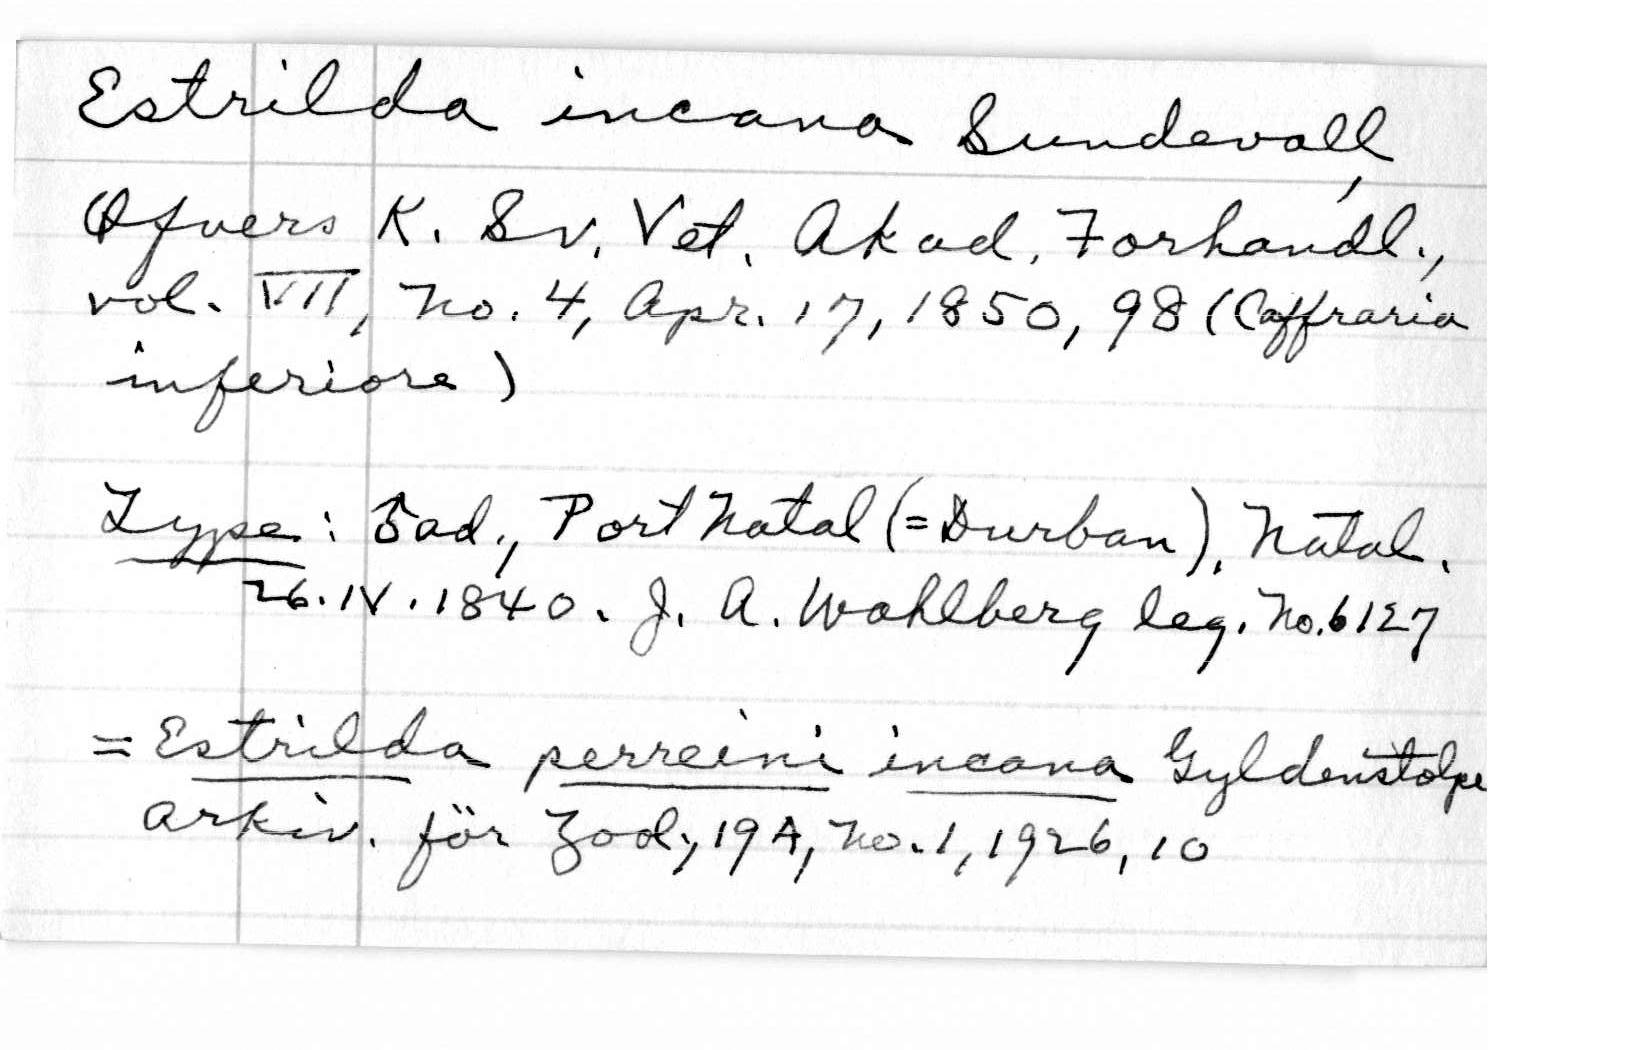 Estrilda incana Sundevall,
Øfvers K. Sv. Vet. Akad. Forhandl.,
vol. VII, no. 4, Apr. 17, 1850, 98 (Caffraria
inferiore)
Type: ad., Port Natal (=Durban), Natal.
26.IV.1840. J. A. Wahlberg leg. No. 6127
= Estrilda perreini incana Gyldenstolpe
Arkiv. för Zool., 19A, no. 1, 1926, 10